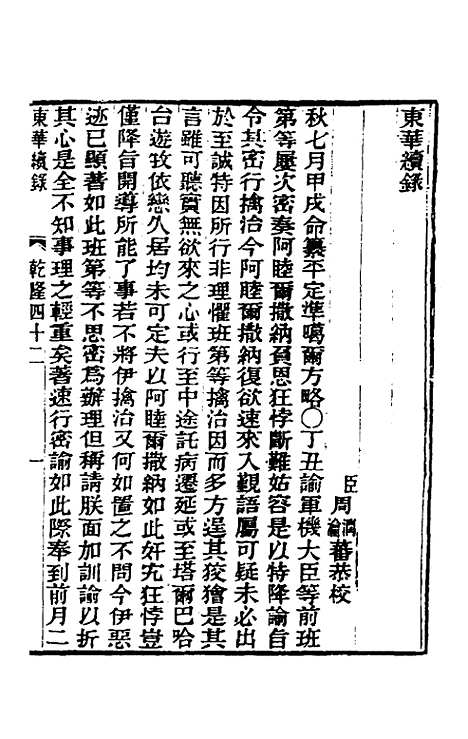 東華續錄
臣周潤蕃恭校
秋七月甲戌命纂平定準噶爾方略〇丁丑諭軍機大臣等前班
第等屢次密奏阿睦爾撒納負恩狂悖斷難姑容是以特降諭旨
令其密行擒治今阿睦爾撒納復欲速來入覲語屬可疑未必出
於至誠特因所行非理懼班第等擒治因而多方逞其狡獪是其
言雖可聽實無欲來之心或行至中途託病遷延或至塔爾巴哈
台遊牧依戀久居均未可定夫以阿睦爾撒納如此奸宄狂悖豈
僅降旨開導所能了事若不將伊擒治又何如置之不問今伊惡
迹已顯著如此班第等不思密爲辦理但稱請朕面加訓諭以折
其心是全不知事理之輕重矣著速行密諭如此際奉到前月二
東華續錄 乾隆四十二 一